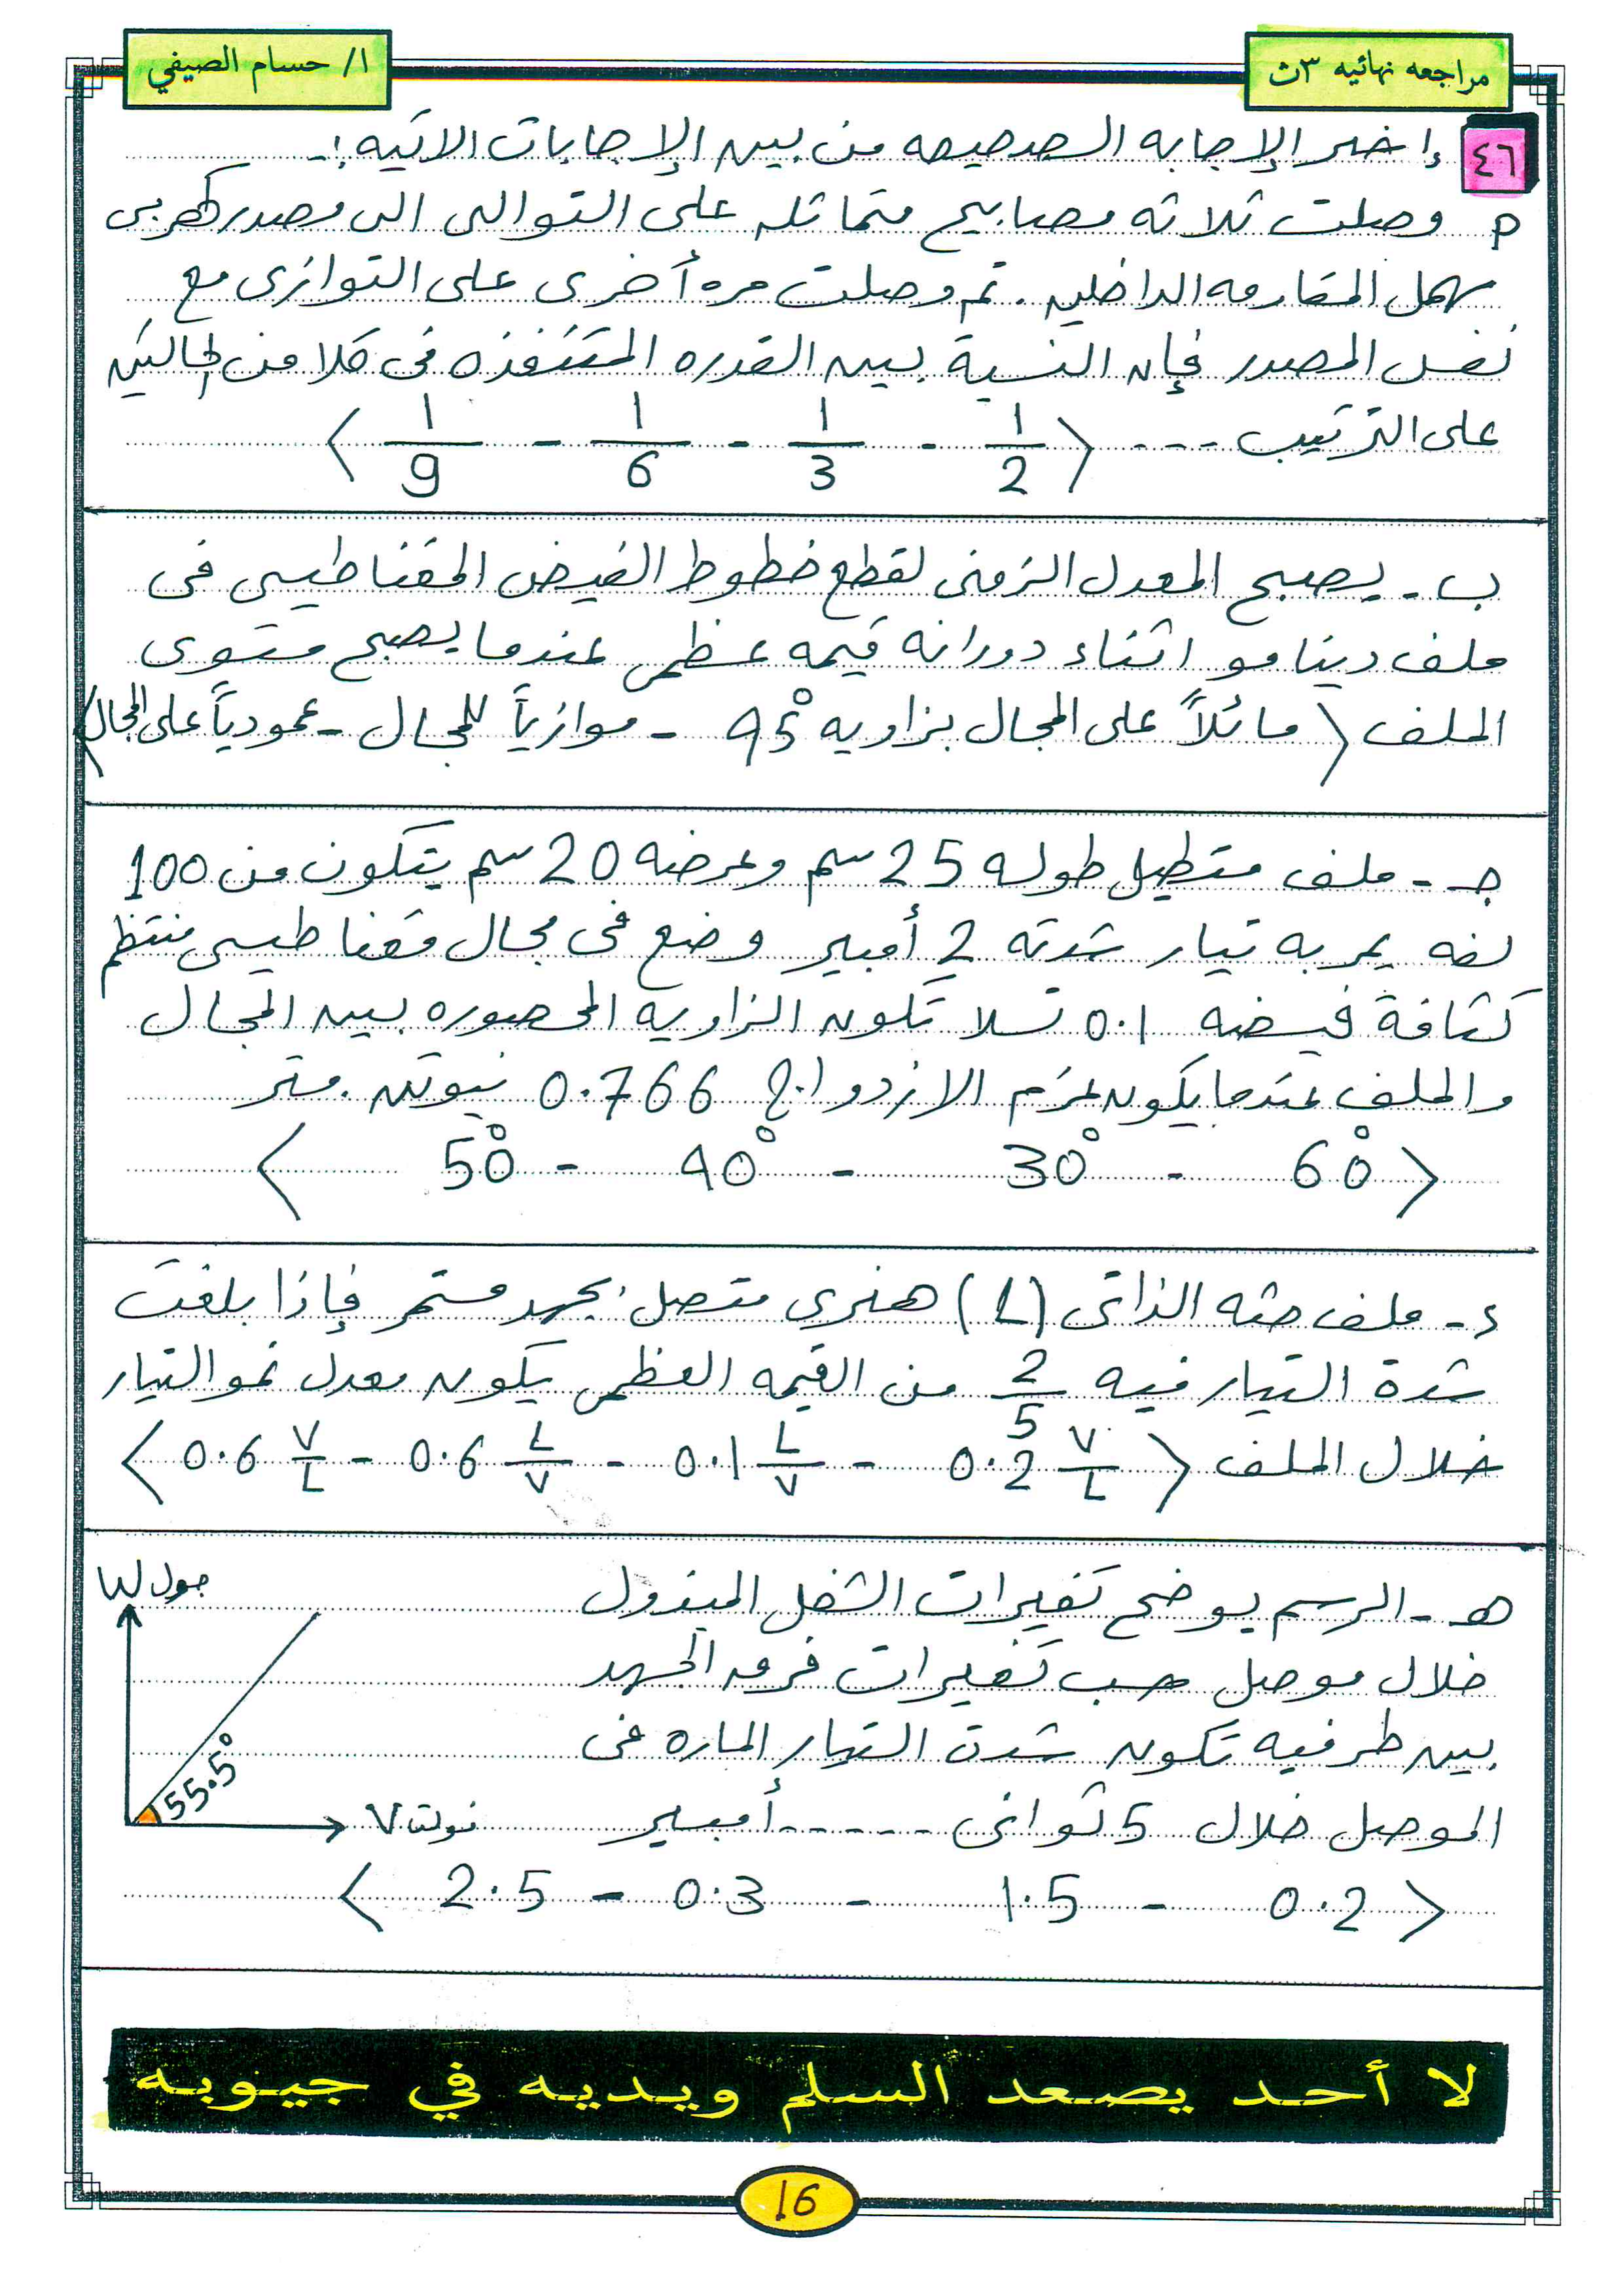 مراجعه نهائيه ٣ث
ا/ حسام الصيفي
٤٦ إختر الإجابه الصحيحه من بين الإجابات الاتيه :-
م وصلت ثلاثه مصابيح متماثله على التوالى الى مصدر كهربى
مهمل المقاومه الداخليه . ثم وصلت مره أخرى على التوازى مع
نفس المصدر فإن النسبة بين القدره المستنفذه فى كلا من الحالتين
على الترتيب ---- ⟨ 1/2 - 1/3 - 1/6 - 1/9 ⟩
ب - يصبح المعدل الزمنى لقطع خطوط الفيض المغناطيسى فى
ملف دينامو اثناء دورانه قيمه عظمى عندما يصبح مستوى
الملف ⟨ مائلاً على المجال بزاويه 45° - موازياً للمجال - عمودياً على المجال ⟩
جـ - ملف مستطيل طوله 25 سم وعرضه 20 سم يتكون من 100
لفه يمر به تيار شدته 2 أمبير وضع فى مجال مغناطيسى منتظم
كثافة فيضه 0.1 تسلا تكون الزاويه المحصوره بين المجال
والملف عندما يكون عزم الازدواج 0.766 نيوتن . متر
⟨ 60° - 30° - 40° - 50° ⟩
د - ملف حثه الذاتى (L) هنرى متصل بجهد مستمر فإذا بلغت
شدة التيار فيه 2/5 من القيمه العظمى يكون معدل نمو التيار
خلال الملف ⟨ 0.2 V/L - 0.1 L/V - 0.6 L/V - 0.6 V/L ⟩
هـ - الرسم يوضح تغيرات الشغل المبذول
خلال موصل حسب تغيرات فرق الجهد
بين طرفيه تكون شدة التيار الماره فى
الموصل خلال 5 ثوانى ------ أمبير
⟨ 0.2 - 1.5 - 0.3 - 2.5 ⟩
جول W
55.5°
V فولت
لا أحد يصعد السلم ويديه في جيوبه
16